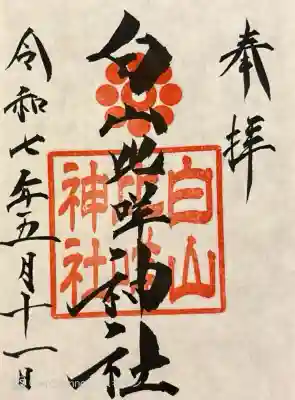 奉拝
白山比咩神社
白山
比咩
神社
令和七年五月十一日